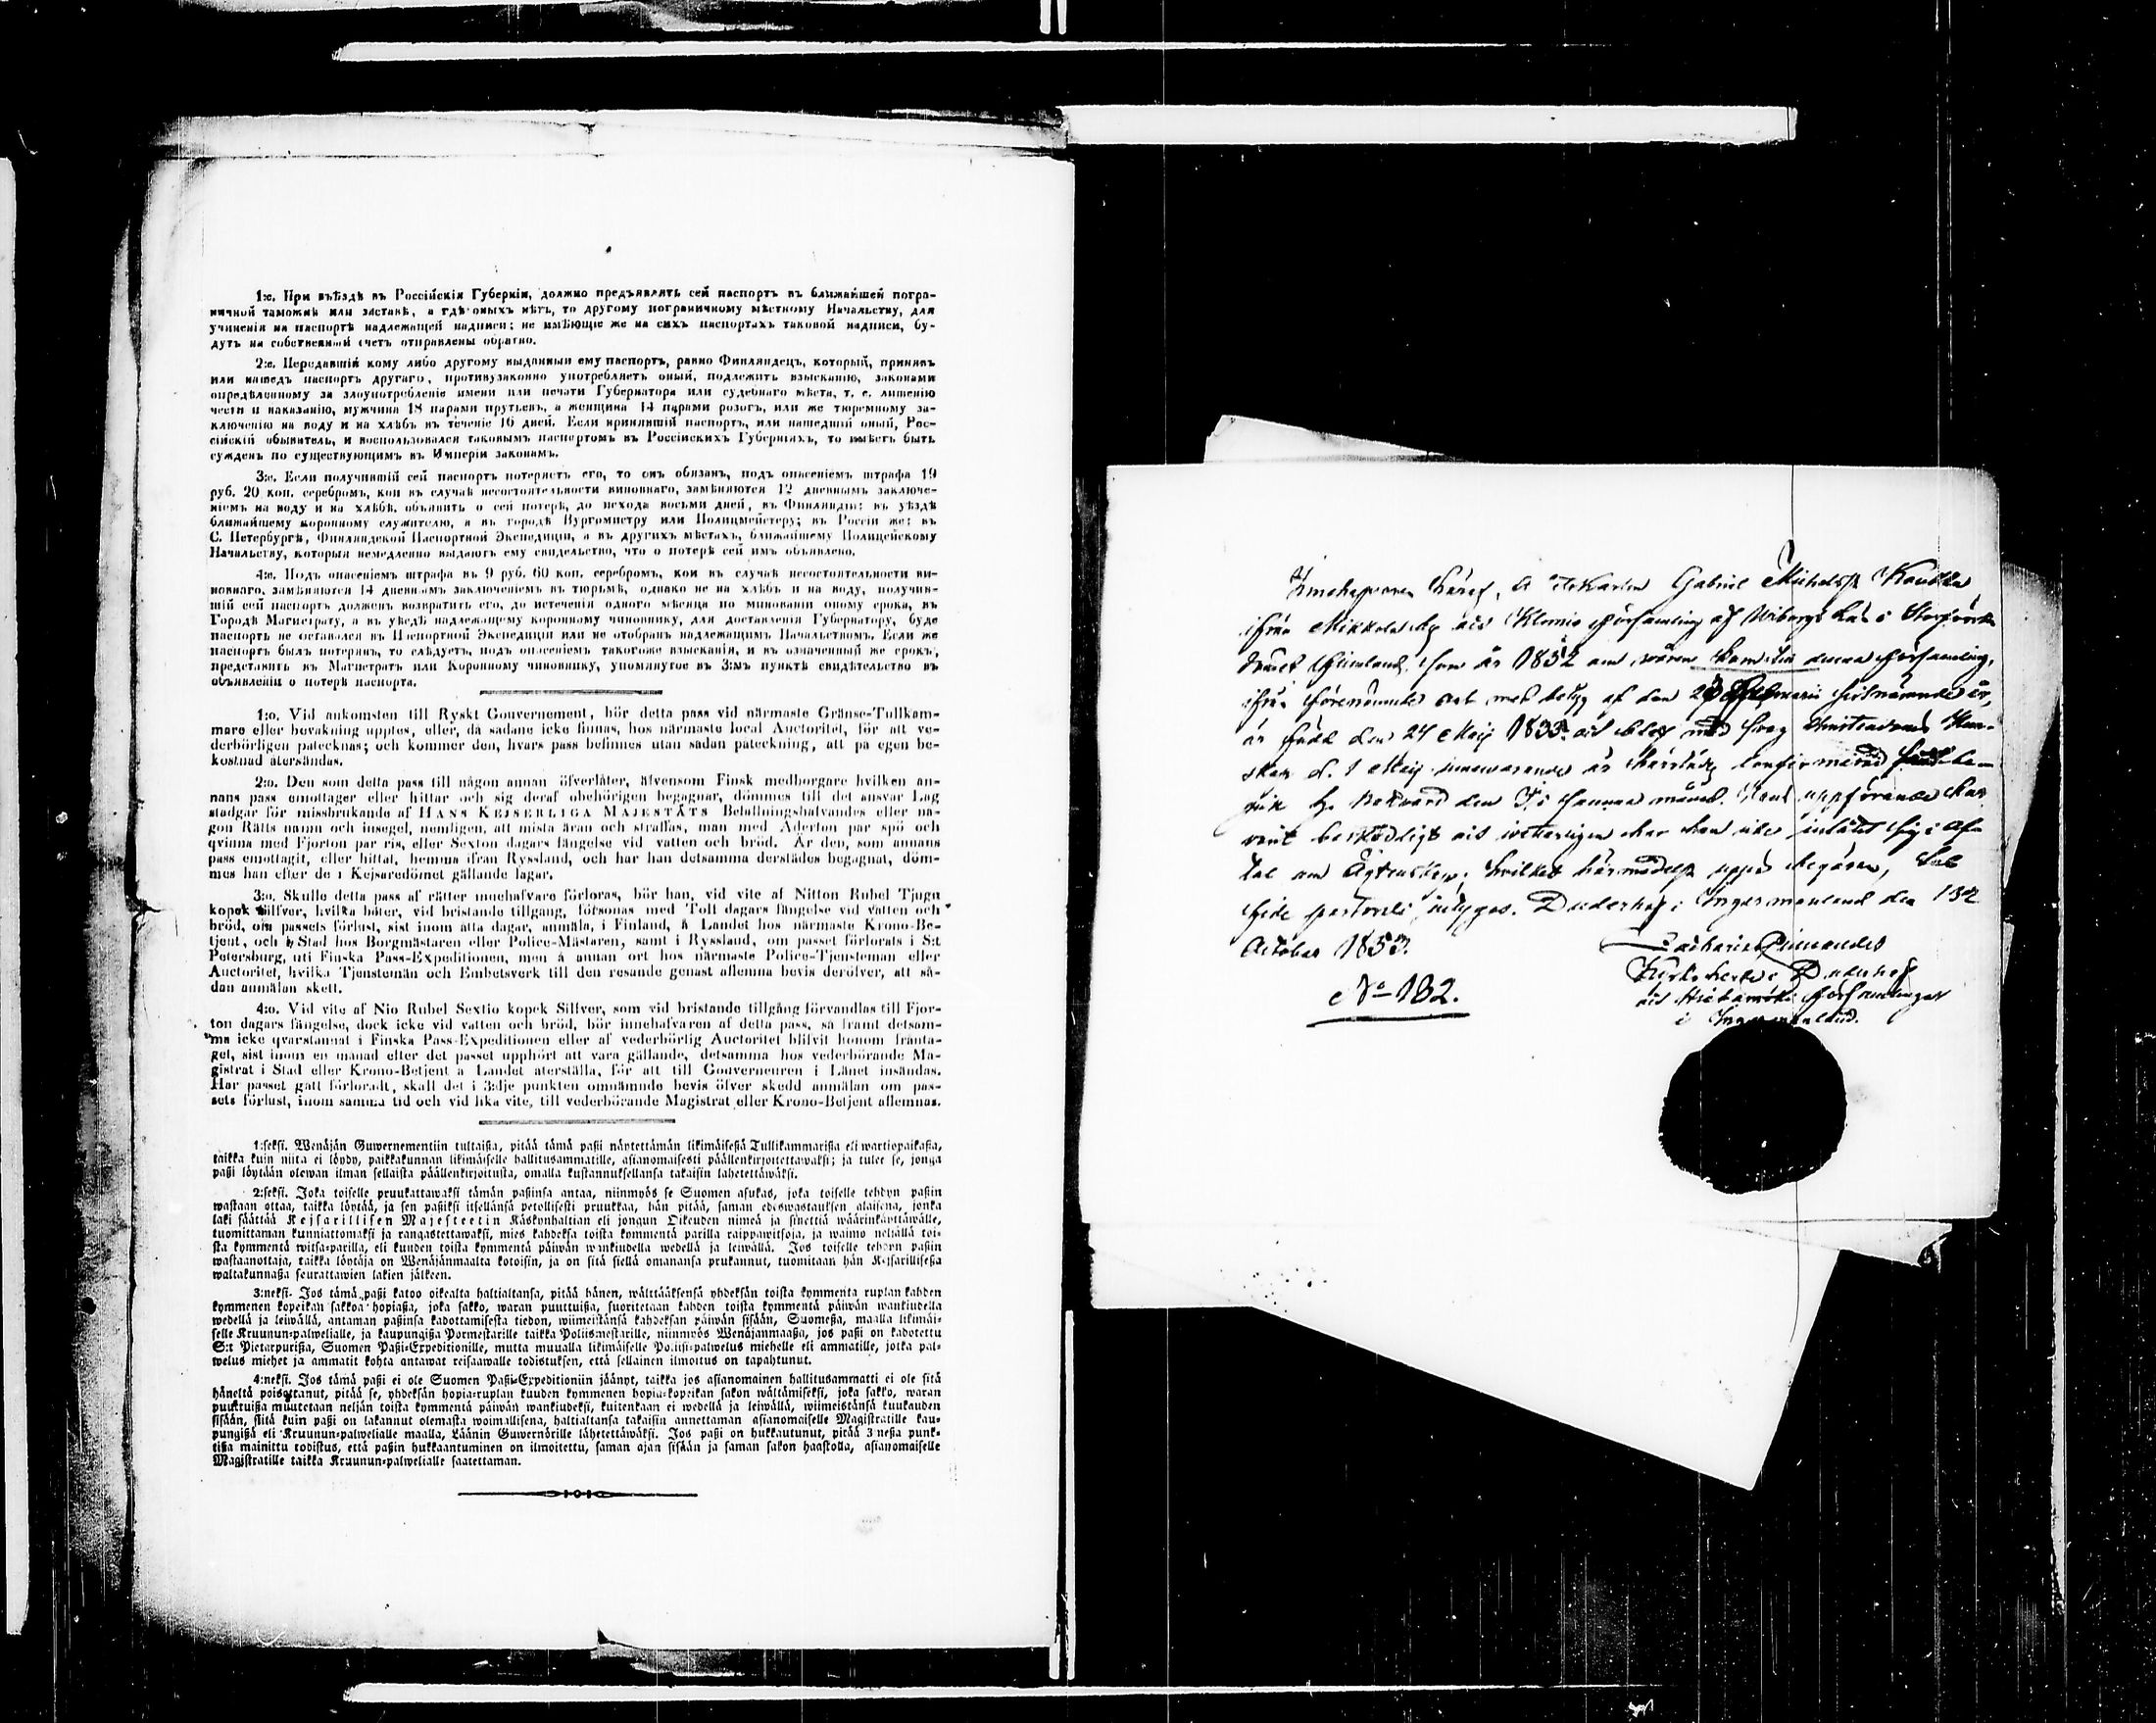 1:е. При въѣздѣ въ Россійскія Губерніи, должно предъявлять сей паспортъ въ ближайшей погра-
ничной таможнѣ или заставѣ, а гдѣ оныхъ нѣтъ, то другому пограничному мѣстному Начальству, для
учиненія на паспортѣ надлежащей надписи; не имѣющіе же на сихъ паспортахъ таковой надписи, бу-
дутъ на собственный счетъ отправлены обратно.
2:е. Передавшій кому либо другому выданный ему паспортъ, равно Финляндецъ, который, принявъ
или нашедъ паспортъ другаго, противузаконно употребляетъ оный, подлежитъ взысканію, законами
опредѣленному за злоупотребленіе имени или печати Губернатора или судебнаго мѣста, т. е. лишенію
чести и наказанію, мужчина 18 парами прутьевъ, а женщина 14 парами розогъ, или же тюремному за-
ключенію на воду и на хлѣбъ въ теченіе 16 дней. Если принявшій паспортъ, или нашедшій оный, Рос-
сійскій обыватель, и воспользовался таковымъ паспортомъ въ Россійскихъ Губерніяхъ, то имѣетъ быть
сужденъ по существующимъ въ Имперіи законамъ.
3:е. Если получившій сей паспортъ потеряетъ его, то онъ обязанъ, подъ опасеніемъ штрафа 19
руб. 20 коп. серебромъ, кои въ случаѣ несостоятельности виновнаго, замѣняются 12 дневнымъ заключе-
ніемъ на воду и на хлѣбъ, объявить о сей потерѣ, до исхода восьми дней, въ Финляндіи: въ уѣздѣ
ближайшему коронному служителю, а въ городѣ Бургомистру или Полицмейстеру; въ Россіи же: въ
С. Петербургѣ, Финляндской Паспортной Экспедиціи, а въ другихъ мѣстахъ, ближайшему Полицейскому
Начальству, которыя немедленно выдаютъ ему свидѣтельство, что о потерѣ сей имъ объявлено.
4:е. Подъ опасеніемъ штрафа въ 9 руб. 60 коп. серебромъ, кои въ случаѣ несостоятельности ви-
новнаго, замѣняются 14 дневнымъ заключеніемъ въ тюрьмѣ, однако не на хлѣбъ и на воду, получив-
шій сей паспортъ долженъ возвратить его, до истеченія одного мѣсяца по минованіи оному срока, въ
Городѣ Магистрату, а въ уѣздѣ надлежащему коронному чиновнику, для доставленія Губернатору, буде
паспортъ не оставался въ Паспортной Экспедиціи или не отобранъ надлежащимъ Начальствомъ. Если же
паспортъ былъ потерянъ, то слѣдуетъ, подъ опасеніемъ такогоже взысканія, и въ означенный же срокъ,
представить въ Магистратъ или Коронному чиновнику, упомянутое въ 3мъ пунктѣ свидѣтельство въ
объявленіи о потерѣ паспорта.
1:o. Vid ankomsten till Ryskt Gouvernement, bör detta pass vid närmaste Gränse-Tullkam-
mare eller bevakning upptes, eller, då sådane icke finnas, hos närmaste local Auctoritet, för att ve-
derbörligen patecknas; och kommer den, hvars pass befinnes utan sådan påteckning, att på egen be-
kostnad återsändas.
2:o. Den som detta pass till någon annan öfverlåter, äfvensom Finsk medborgare hvilken an-
nans pass emottager eller hittar och sig deraf obehörigen begagnar, dömmes till det ansvar Lag
stadgar för missbrukande af HANS KEJSERLIGA MAJESTÄTS Befallningshafvandes eller nå-
gon Rätts namn och insegel, nemligen, att mista äran och straffas, man med Aderton par spö och
qvinna med Fjorton par ris, eller Sexton dagars fängelse vid vatten och bröd. Är den, som annans
pass emottagit, eller hittat, hemma ifrån Ryssland, och har han detsamma derstädes begagnat, döm-
mes han efter de i Kejsaredömet gällande lagar.
3:o. Skulle detta pass af rätter innehafvare förloras, bör han, vid vite af Nitton Rubel Tjugu
kopek Silfver, hvilka böter, vid bristande tillgång, försonas med Tolf dagars fängelse vid vatten och
bröd, om passets förlust, sist inom åtta dagar, anmäla, i Finland, å Landet hos närmaste Krono-Be-
tjent, och i Stad hos Borgmästaren eller Police-Mästaren, samt i Ryssland, om passet förlorats i S:t
Petersburg, uti Finska Pass-Expeditionen, men å annan ort hos närmaste Police-Tjensteman eller
Auctoritet, hvilka Tjenstemän och Embetsverk till den resande genast aflemna bevis deröfver, att så-
dan anmälan skett.
4:o. Vid vite af Nio Rubel Sextio kopek Silfver, som vid bristande tillgång förvandlas till Fjor-
ton dagars fängelse, dock icke vid vatten och bröd, bör innehafvaren af detta pass, så framt detsam-
ma icke qvarstannat i Finska Pass-Expeditionen eller af vederbörlig Auctoritet blifvit honom franta-
get, sist inom en månad efter det passet upphört att vara gällande, detsamma hos vederbörande Ma-
gistrat i Stad eller Krono-Betjent å Landet aterställa, för att till Gouverneuren i Länet insändas.
Har passet gått förloradt, skall det i 3:dje punkten omnämnde bevis öfver skedd anmälan om pas-
sets förlust, inom samma tid och vid lika vite, till vederbörande Magistrat eller Krono-Betjent aflemnas.
1:seksi. Wenäjän Guwernementiin tultaissa, pitää tämä passi näytettämän likimäisessä Tullikammarissa eli wartiopaikassa,
taikka kuin niitä ei löydy, paikkakunnan likimäiselle hallitusammatille, asianomaisesti päällenkirjoitettawaksi; ja tulee se, jonga
passi löytään olewan ilman sellaista päällenkirjoitusta, omalla kustannuksellansa takaisin lähetettäwäksi.
2:seksi. Joka toiselle pruukattawaksi tämän passinsa antaa, niinmyös se Suomen asukas, joka toiselle tehdyn passin
wastaan ottaa, taikka löytää, ja sen passiksi itsellänsä petollisesti pruukkaa, hän pitää, saman edeswastauksen alaisena, jonka
laki säättää Kejsarillisen Majesteetin Käskynhaltian eli jongun Oikeuden nimeä ja sinettiä wäärinkäyttäwälle,
tuomittaman kunniattomaksi ja rangastettawaksi, mies kahdeksa toista kymmentä parilla raippawitsoja, ja waimo neljällä toi-
sta kymmentä witsa-parilla, eli kuuden toista kymmentä päiwän wankiudella wedellä ja leiwällä. Jos toiselle tehdyn passin
wastaanottaja, taikka löytäjä on Wenäjänmaalta kotoisin, ja on sitä siellä omanansa prukannut, tuomitaan hän Kejsarillisessa
waltakunnassa seurattawien lakien jälkeen.
3:neksi. Jos tämä passi katoo oikealta haltialtansa, pitää hänen, wälttääksensä yhdeksän toista kymmentä ruplan kahden
kymmenen kopeikan sakkoa hopiassa, joka sakko, waran puuttuissa, suoritetaan kahden toista kymmentä päiwän wankiudella
wedellä ja leiwällä, antaman passinsa kadottamisesta tiedon, wiimeistänsä kahdeksan päiwän sisään, Suomessa, maalla likimäi-
selle Kruunun-palwelialle, ja kaupungissa Pormestarille taikka Poliismestarille, niinmyös Wenäjänmaassa, jos passi on kadotettu
S:t Pietarpurissa, Suomen Passi-Expeditionille, mutta muualla likimäiselle Poliisi-palwelus miehelle eli ammatille, jotka pal-
welus miehet ja ammatit kohta antawat reisaawalle todistuksen, että sellainen ilmoitus on tapahtunut.
4:neksi. Jos tämä passi ei ole Suomen Passi-Expeditioniin jäänyt, taikka jos asianomainen hallitusammatti ei ole sitä
häneltä poisottanut, pitää se, yhdeksän hopia-ruplan kuuden kymmenen hopia-kopeikan sakon wältämiseksi, joka sakko, waran
puuttuissa muutetaan neljän toista kymmentä päiwän wankiudeksi, kuitenkaan ei wedellä ja leiwällä, wiimeistänsä kuukauden
sisään, siitä kuin passi on lakannut olemasta woimallisena, haltialtansa takaisin annettaman asianomaiselle Magistratille kau-
pungissa eli Kruunun-palwelialle maalla, Läänin Guwernörille lähetettäwäksi. Jos passi on hukkautunut, pitää 3:nessa punk-
tissa mainittu todistus, että passin hukkaantuminen on ilmoitettu, saman ajan sisään ja saman sakon haastolla, asianomaiselle
Magistratille taikka Kruunun-palwelialle saatettaman.
Gabriel Michelss
ifrån Mikkola By och församling af Wiborgs Län i Storfurste
Finland, som år 1852 denna församling,
ifrån förenämnde ort med betyg af den
är född den 24 Maij 1833 och blef med svag
d. 1 Maij innewarande år härstädes confirmerad
H. Nattvard den i samma månad. Hans uppförande har
varit och har han icke inlåtit sig i af-
tal om Ägtenskap; hvilket härmedelst uppå begäran,
fide pastorali intygas. Duderhof i Ingermanland den 13de
October 1853.
No 132.
Zacharias
Kyrkoherde i Duderhof
och församlingar
i Ingermanland.